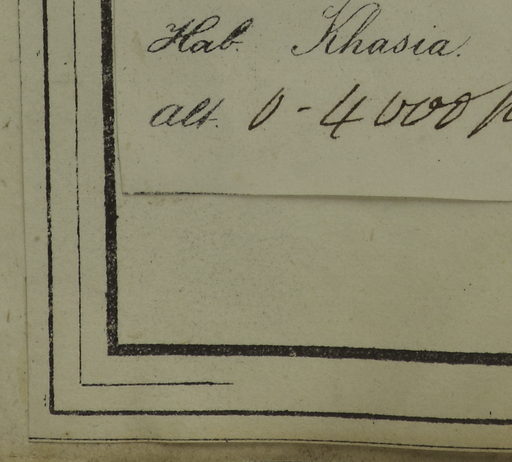 Hab. Khasia.
alt. 0-4000